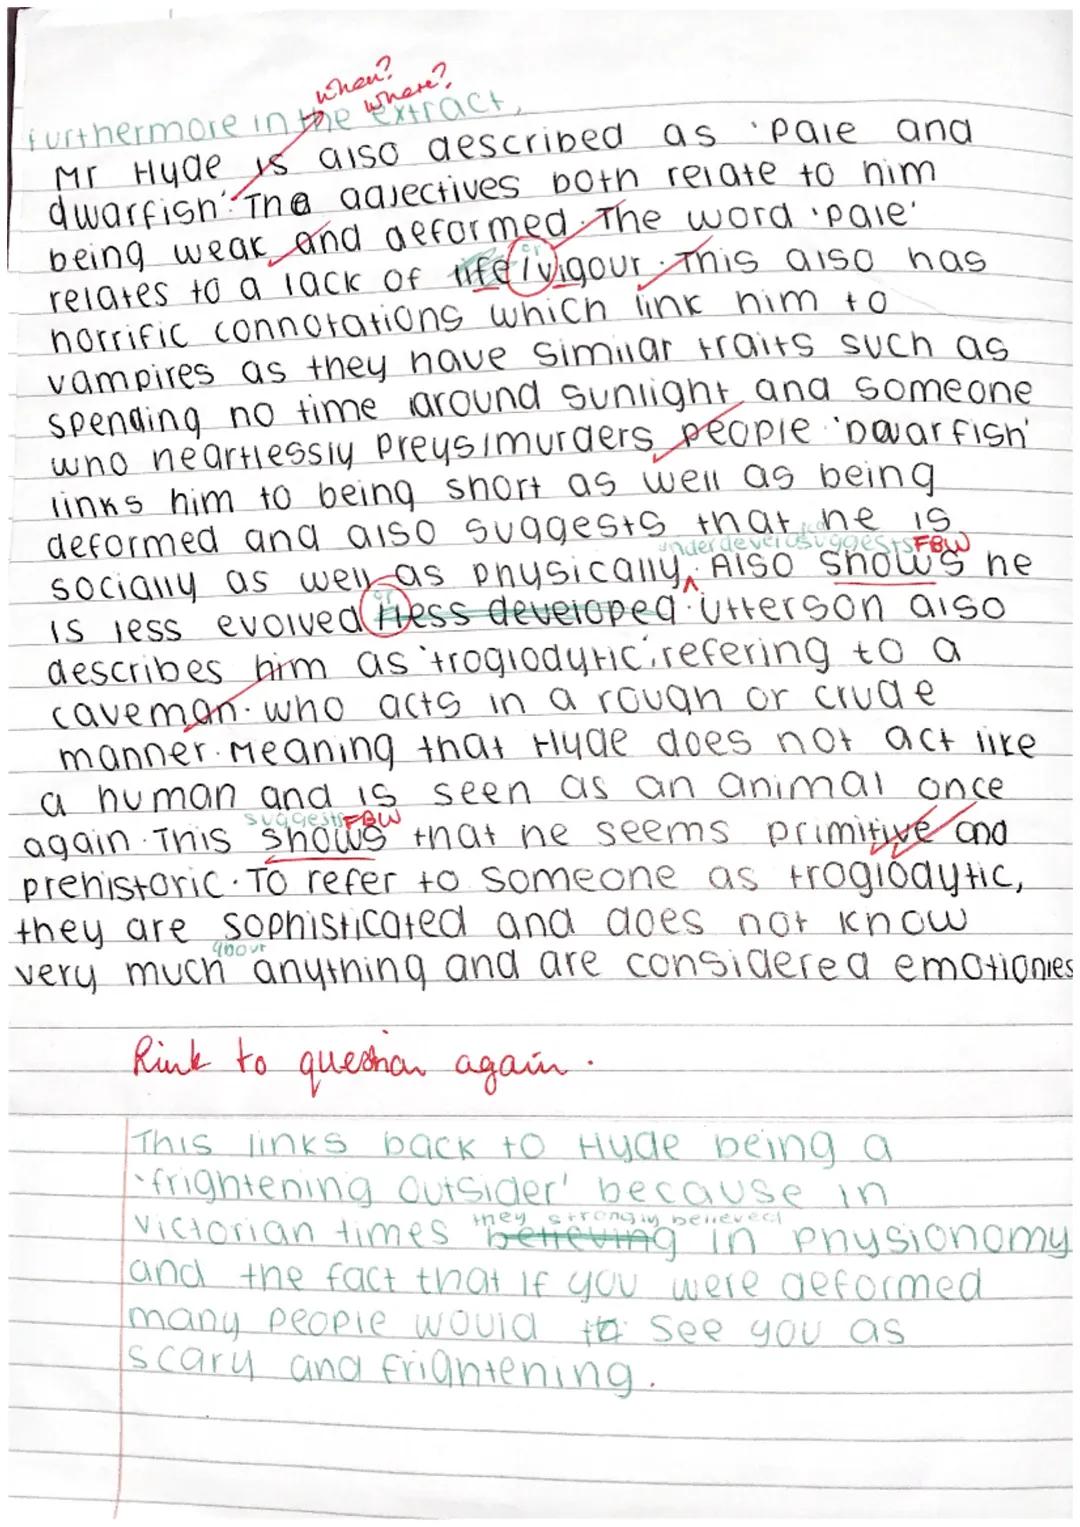 when?
where?
furthermore in the extract,
Mr Hyde is also described as 'pale and
dwarfish'. The adjectives both relate to him
being weak and deformed. The word 'pale'
or
relates to a lack of life/vigour. This also has
horrific connotations which link him to
vampires as they have similar traits such as
spending no time around sunlight and someone
who heartlessly preys/murders people 'Dwarfish'
links him to being short as well as being
deformed and also suggests that he is
suggests FBW
socially as well as physically. Also shows he
or
is less evolved /less developed. Utterson also
describes him as 'troglodytic', refering to a
caveman. who acts in a rough or crude
manner. Meaning that Hyde does not act like
a human and is seen as an animal once
suggests FBW
again. This shows that he seems primitive and
prehistoric. To refer to someone as troglodytic,
they are sophisticated and does not know
about
very much anything and are considered emotionles
Link to question again.
This links back to Hyde being a
'frightening outsider' because in
they strongly believed
victorian times believing in physionomy
and the fact that if you were deformed
many people would to see you as
scary and frightening.